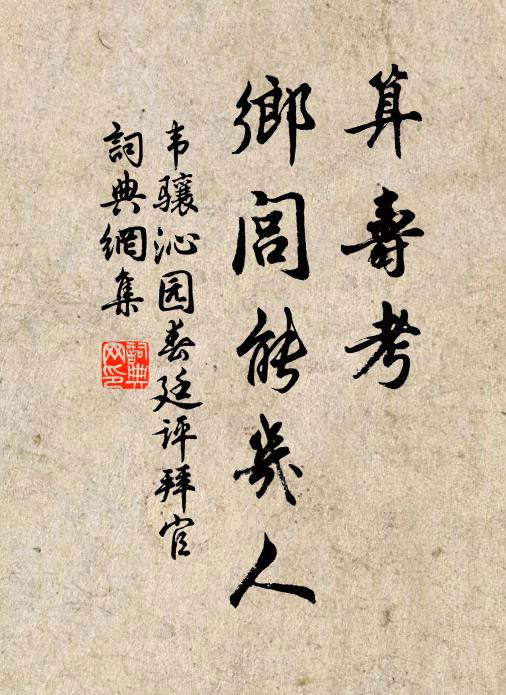 算壽考
鄉閭能幾人
韦骧沁园春廷评拜官
詞典網集
詞典网印